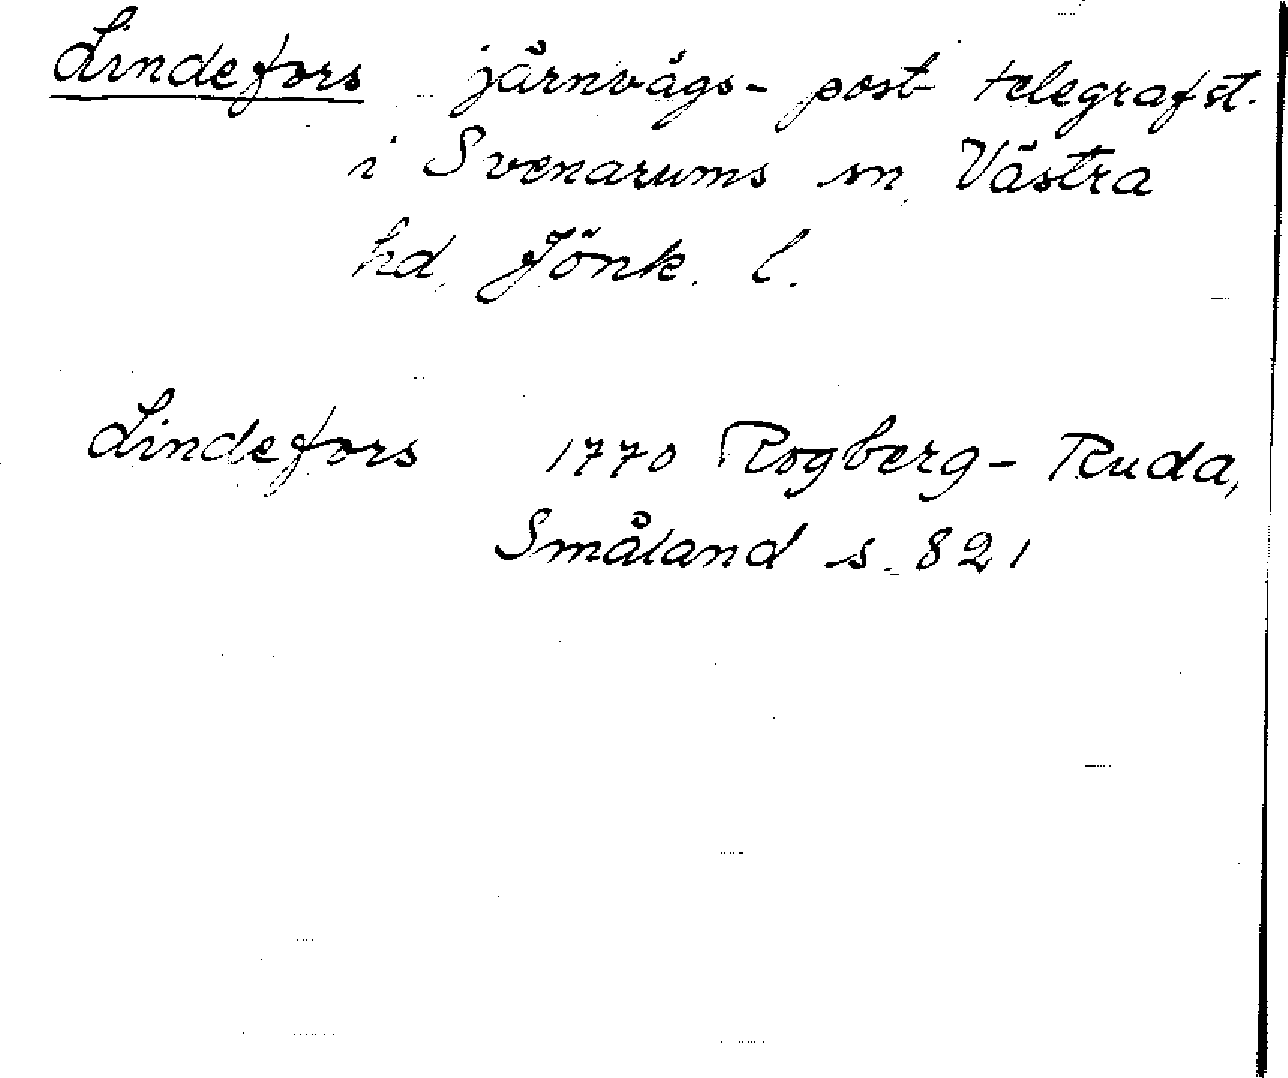 Lindefors järnvägs- post- telegrafst.
i Svenarums sn, Västra
hd, Jönk. l.
Lindefors 1770 Rogberg-Ruda,
Småland s. 821